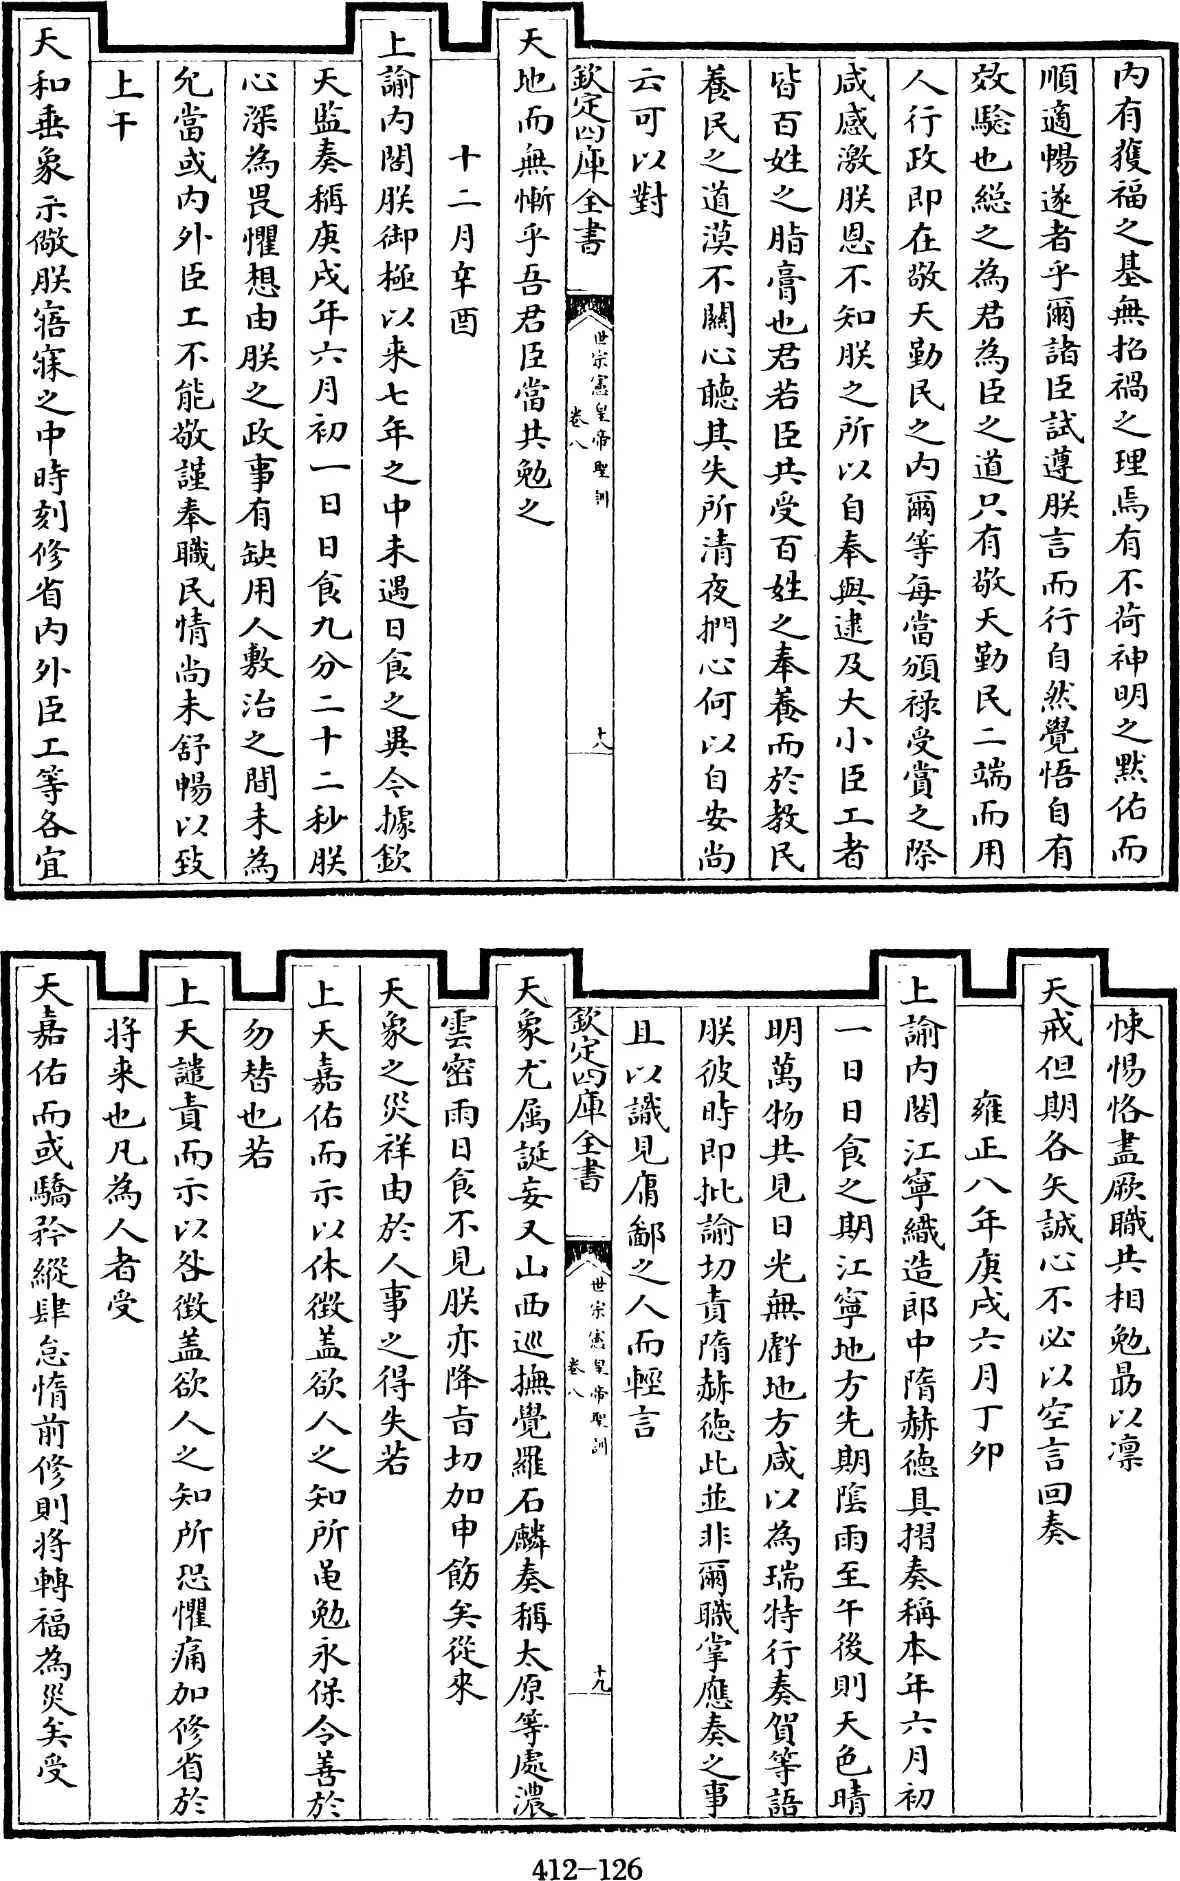 內有獲福之基無招禍之理焉有不荷神明之默佑而
順適暢遂者乎爾諸臣試遵朕言而行自然覺悟自有
效驗也總之為君為臣之道只有敬天勤民二端而用
人行政即在敬天勤民之内爾等每當頒祿受賞之際
咸感激朕恩不知朕之所以自奉與逮及大小臣工者
皆百姓之脂膏也君若臣共受百姓之奉養而於教民
養民之道漠不關心聽其失所清夜捫心何以自安尚
云可以對
欽定四庫全書
世宗憲皇帝聖訓
卷八
十八
天地而無慚乎吾君臣當共勉之
十二月辛酉
上諭内閣朕御極以来七年之中未遇日食之異今據欽
天監奏稱庚戌年六月初一日日食九分二十二秒朕
心深為畏懼想由朕之政事有缺用人敷治之間未為
允當或内外臣工不能敬謹奉職民情尚未舒暢以致
上干
天和垂象示儆朕寤寐之中時刻修省内外臣工等各宜
悚惕恪盡厥職共相勉勗以凛
天戒但期各矢誠心不必以空言回奏
雍正八年庚戌六月丁卯
上諭内閣江寧織造郎中隋赫徳具摺奏稱本年六月初
一日日食之期江寧地方先期陰雨至午後則天色晴
明萬物共見日光無虧地方咸以為瑞特行奏賀等語
朕彼時即批諭切責隋赫徳此並非爾職掌應奏之事
且以識見庸鄙之人而輕言
欽定四庫全書
世宗憲皇帝聖訓
卷八
十九
天象尤属誕妄又山西巡撫覺羅石麟奏稱太原等處濃
雲密雨日食不見朕亦降旨切加申飭矣從來
天象之災祥由於人事之得失若
上天嘉佑而示以休徴盖欲人之知所黽勉永保令善於
勿替也若
上天譴責而示以咎徴盖欲人之知所恐懼痛加修省於
将来也凡為人者受
天嘉佑而或驕矜縱肆怠惰前修則將轉福為災矣受
412-126